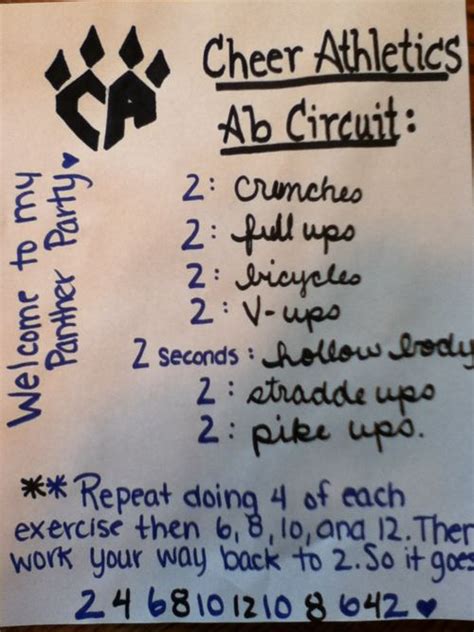 CA
Cheer Athletics
Ab Circuit:
Welcome to my
Panther Party ♥
2: crunches
2: full ups
2: bicycles
2: V-ups
2 seconds: hollow body
2: stradde ups
2: pike ups.
** Repeat doing 4 of each
exercise then 6, 8, 10, and 12. Then
work your way back to 2. So it goes
2 4 6 8 10 12 10 8 6 4 2 ♥